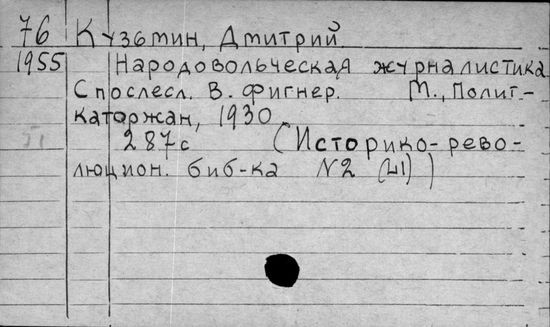 76 Кузьмин, Дмитрий
1955 Народовольческая журналистика
С послесл. В. Фигнер. М., Полит-
каторжан, 1930
287с (Историко-рево-
люцион. биб-ка N2 (LI) )